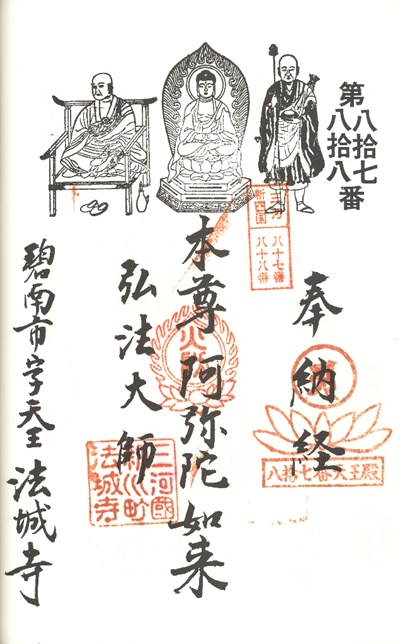 第八拾七
八拾八番
三河
新四国
八十七番
八十八番
奉納経
八拾七番大王殿
本尊阿弥陀如来
弘法大師
三河國
新川町
法城寺
碧南市字天王法城寺